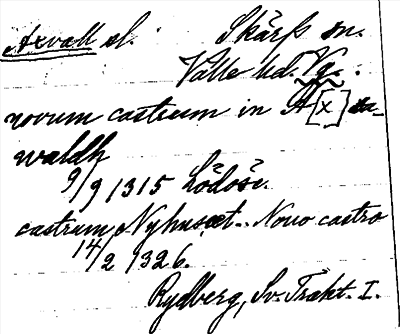 Axvall sl. Skärfs sn.
Valle hd. Vg.
novum castrum in A[x]sa-
waldh
9/9 1315 Lödöse.
castrum Nyhuset. Novo castro
14/2 1326.
Rydberg, Sv. Trakt. I.